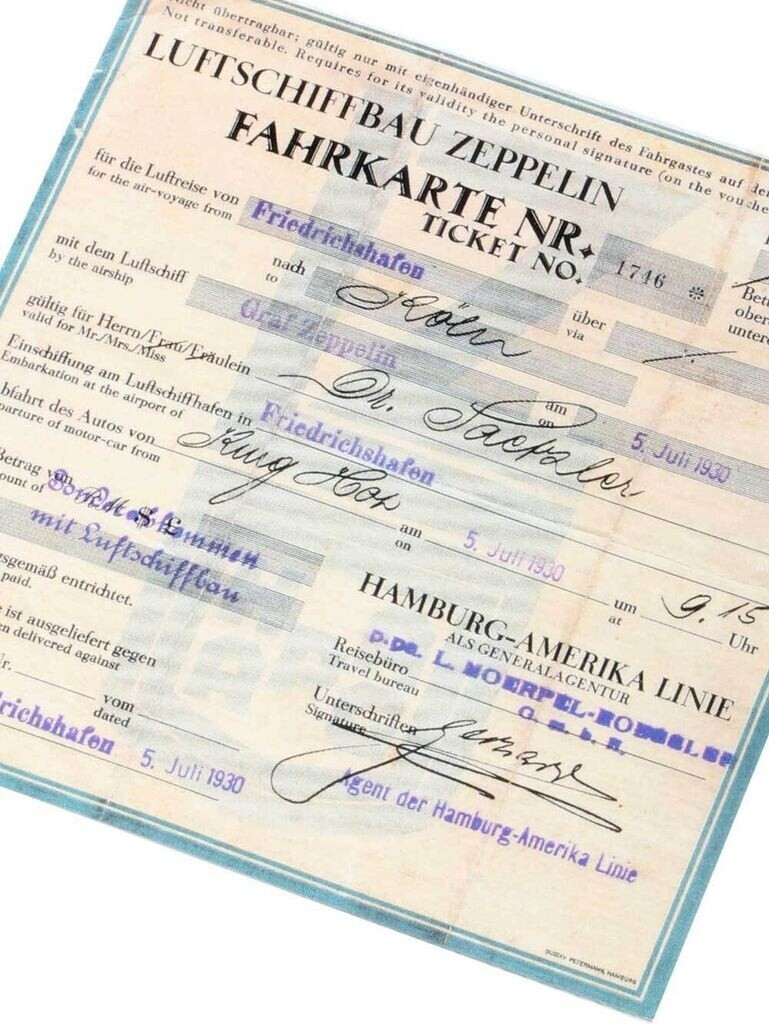 nicht übertragbar; gültig nur mit eigenhändiger Unterschrift des Fahrgastes auf
Not transferable. Requires for its validity the personal signature (on the
LUFTSCHIFFBAU ZEPPELIN
FAHRKARTE NR.
TICKET NO. 1746 *
für die Luftreise von Friedrichshafen
for the air-voyage from
nach Köln über
to via
mit dem Luftschiff Graf Zeppelin
by the airship
am 5. Juli 1930
on
gültig für Herrn/Frau/Fräulein Dr.
valid for Mr./Mrs./Miss
Einschiffung am Luftschiffhafen in Friedrichshafen
Embarkation at the airport of
bfahrt des Autos von
parture of motor-car from
am 5. Juli 1930
on
um 9.15 Uhr
at
Betrag von RM $ £
ount of
mit Luftschiffbau
sgemäß entrichtet.
paid.
e ist ausgeliefert gegen
en delivered against
r. vom
dated
richshafen 5. Juli 1930
HAMBURG-AMERIKA LINIE
ALS GENERALAGENTUR
Reisebüro p.pa. L. MOERPEL-ROESSLER
Travel bureau G.m.b.H.
Unterschriften
Signature
Agent der Hamburg-Amerika Linie
GUSTAV PETERMANN, HAMBURG